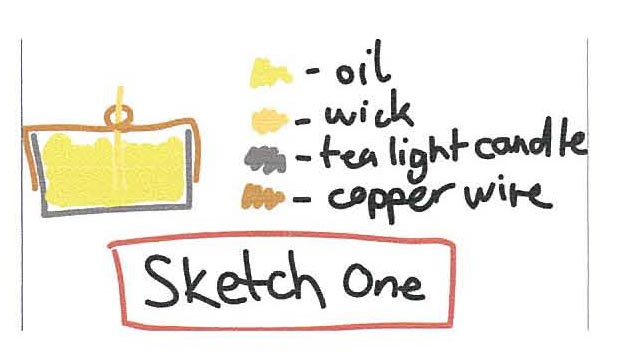 - oil
- wick
- tea light candle
- copper wire
Sketch One